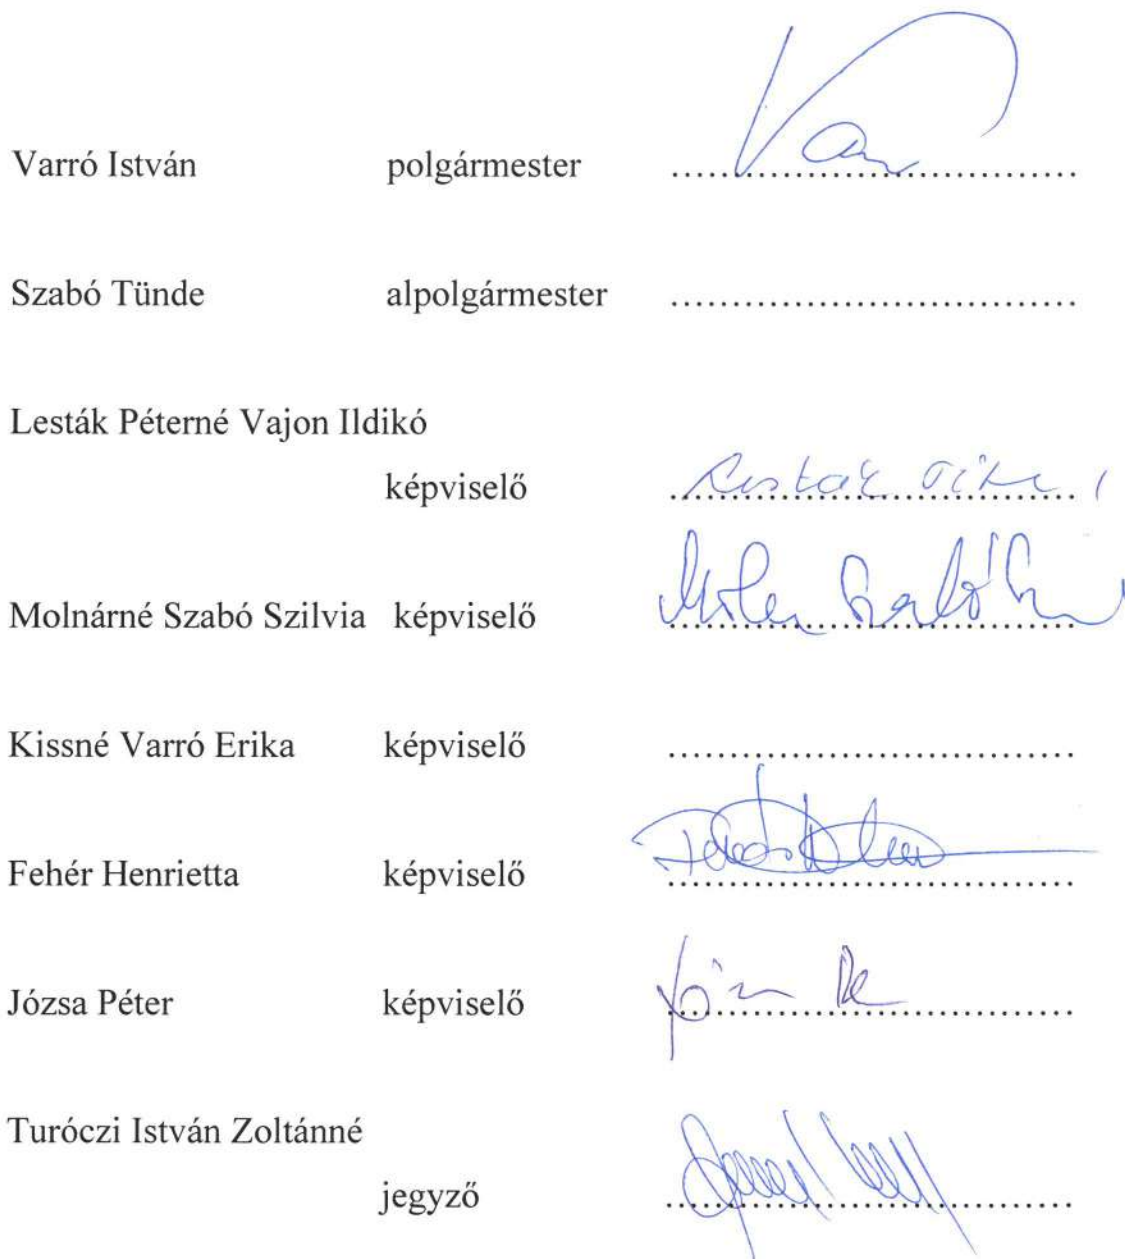 Varró István polgármester ..............................
Szabó Tünde alpolgármester ..............................
Lesták Péterné Vajon Ildikó
képviselő ..............................
Molnárné Szabó Szilvia képviselő ..............................
Kissné Varró Erika képviselő ..............................
Fehér Henrietta képviselő ..............................
Józsa Péter képviselő ..............................
Turóczi István Zoltánné
jegyző ..............................